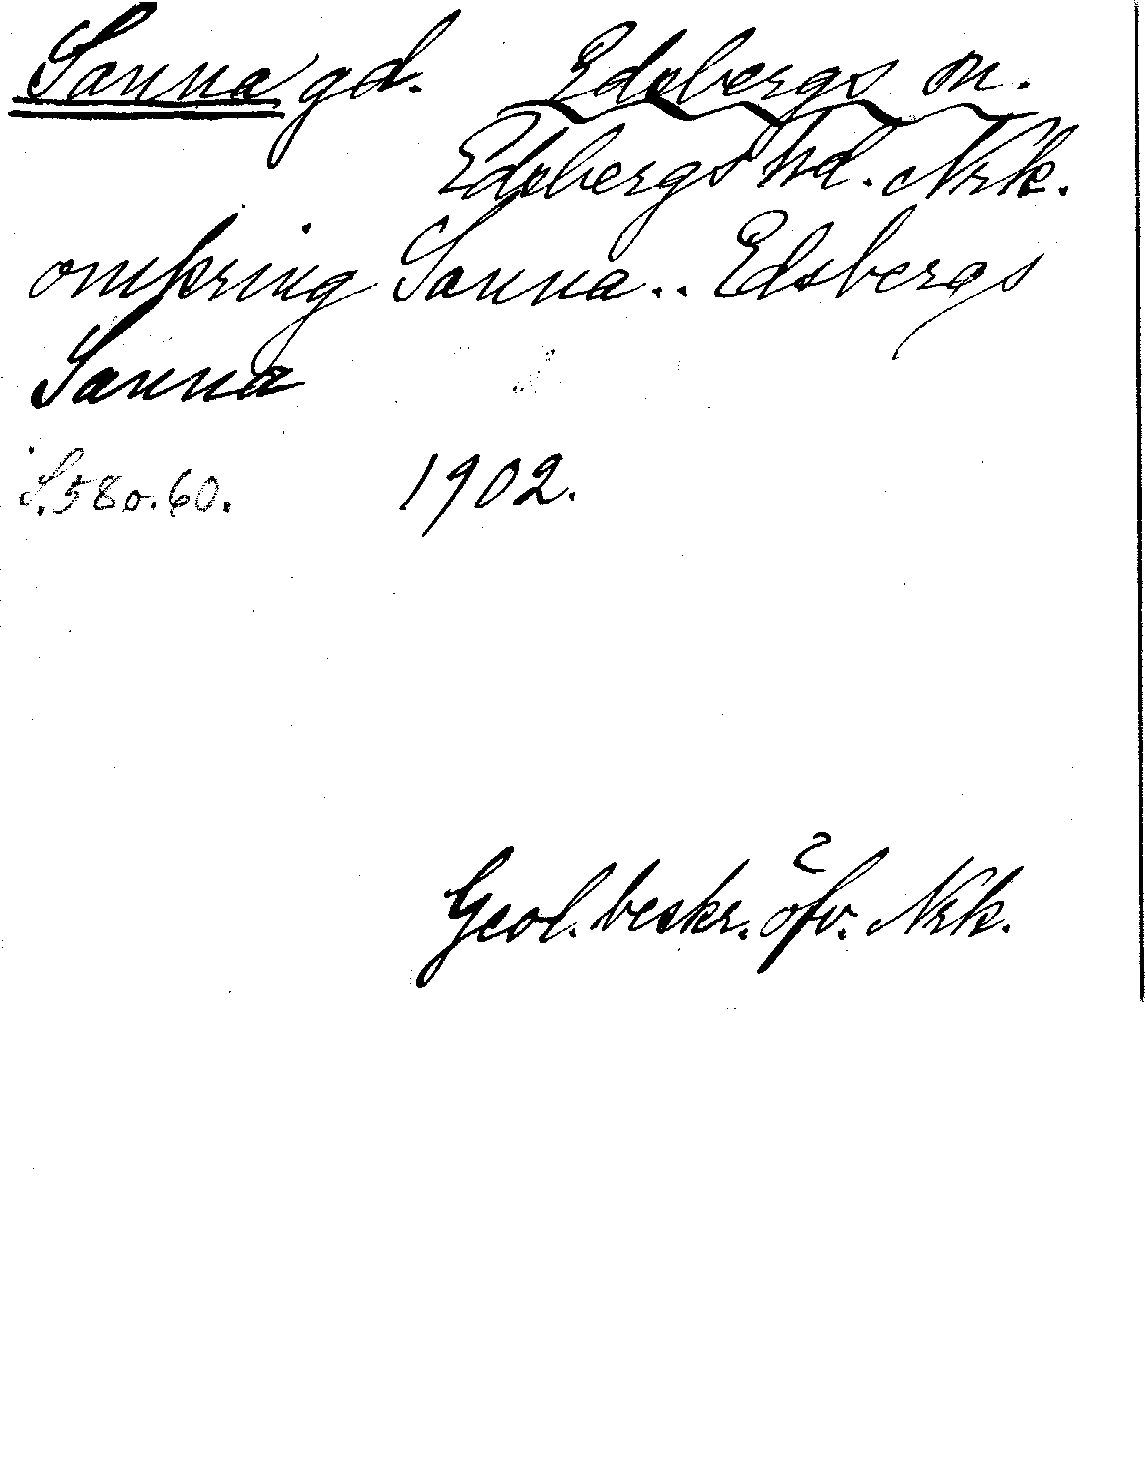 Sanna gd. Edsbergs sn.
Edsbergs hd. Nrk.
omkring Sanna.. Edsbergs
Sanna
S. 58 o. 60. 1902.
Geol. beskr. öfv. Nrk.